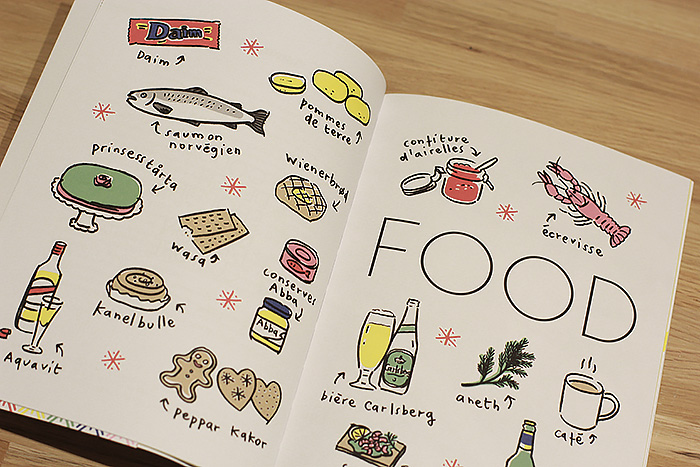 Daim
Daim
pommes
de terre
saumon
norvégien
prinsesstårta
Wienerbrød
wasa
conserves
Abba
Abba
Kanelbulle
Aquavit
peppar kakor
confiture
d'airelles
écrevisse
FOOD
bière Carlsberg
aneth
café